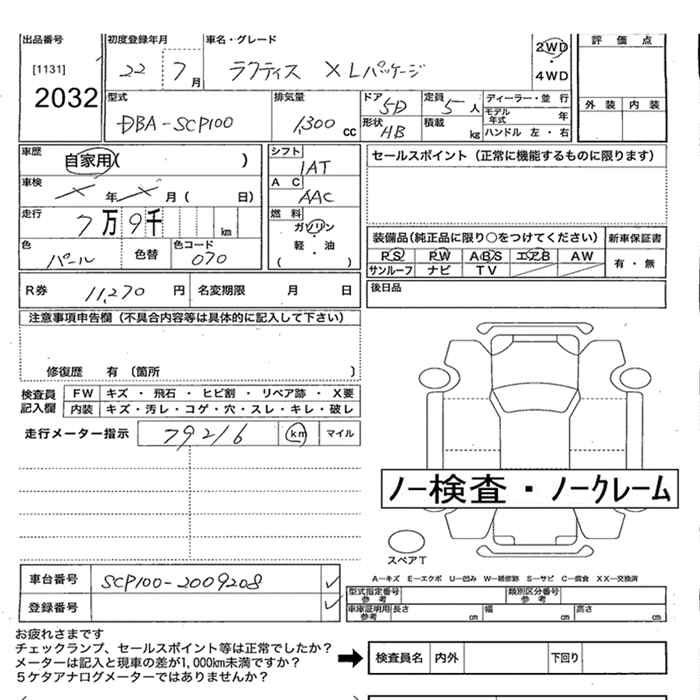 出品番号 初度登録年月 車名・グレード 評価点
[1131] 22 7月 ラクティス XLパッケージ 2WD ・ 4WD
2032 外装 内装
型式 排気量 ドア 5D 定員 5人 ディーラー・並行
DBA-SCP100 1,300cc 形状 HB 積載 kg モデル年式 年
ハンドル 左・右
車歴 自家用( ) シフト IAT セールスポイント(正常に機能するものに限ります)
車検 年 月( 日) AC AAC
走行 7万9千 km 燃料 ガソリン・軽・油 ( )
装備品(純正品に限り○をつけてください) 新車保証書
色 パール 色替 色コード 070 PS PW ABS エアB AW 有・無
サンルーフ ナビ TV
R券 11,270円 名変期限 月 日 後日品
注意事項申告欄(不具合内容等は具体的に記入して下さい)
修復歴 有(箇所 )
検査員記入欄 FW キズ・飛石・ヒビ割・リペア跡・X要
内装 キズ・汚レ・コゲ・穴・スレ・キレ・破レ
走行メーター指示 79216 km マイル
ノー検査・ノークレーム
スペアT
A-キズ E-エクボ U-凹み W-補修跡 S-サビ C-腐食 XX-交換済
車台番号 SCP100-2009208 型式指定番号 参考 類別区分番号 参考
登録番号 車庫証明用 参考 長さ cm 幅 cm 高さ cm
お疲れさまです
チェックランプ、セールスポイント等は正常でしたか?
メーターは記入と現車の差が1,000km未満ですか? 検査員名 内外 下回り
5ケタアナログメーターではありませんか?